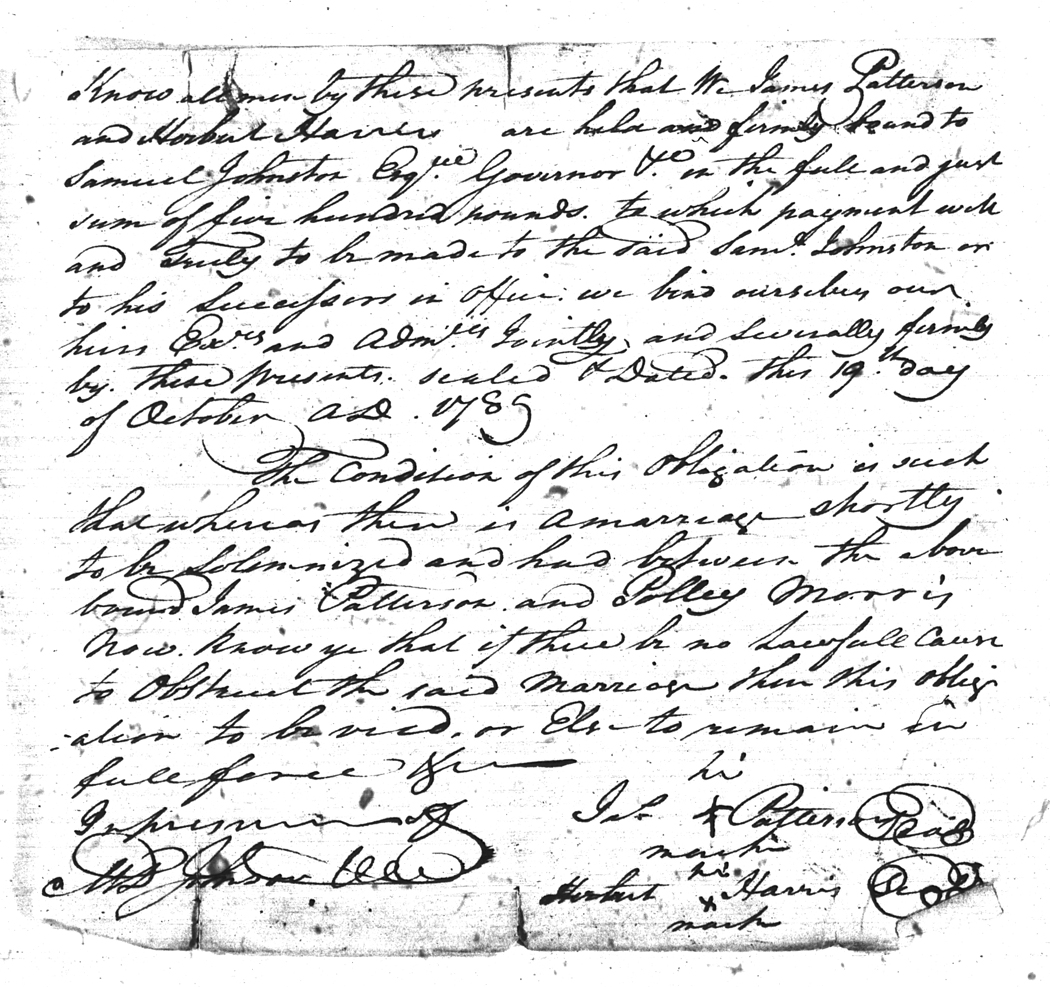 Know all men by these presents that We James Patterson
and Herbert Harris are held and firmly bound to
Samuel Johnston Esqr. Governor &c in the full and just
sum of five hundred pounds. to which payment well
and Truly to be made to the said Saml. Johnston or
to his Successors in office. we bind ourselves our
heirs Exrs and Admrs Jointly, and Severally firmly
by. these presents. sealed & Dated. this 19th day
of October AD. 1789
The Condition of this Obligation is such
that whereas there is a marriage shortly
to be Solemnized and had between the above
bound James Patterson and Polley Morris
Now. Know ye that if there be no Lawfull Cause
to Obstruct the said Marriage then this oblig
-ation to be void, or Else to remain in
full force &c
In presence of
Johnson
his
Jas X Patterson Seal
mark
his
Herbert X Harris Seal
mark